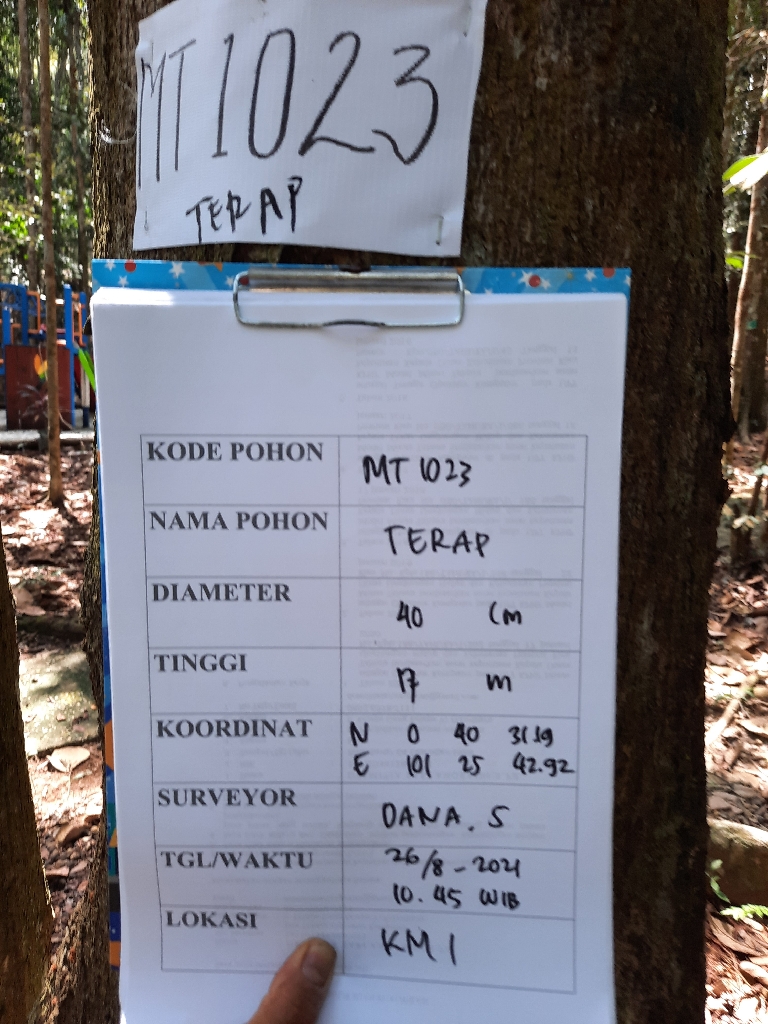 MT 1023
TERAP
KODE POHON MT 1023
NAMA POHON TERAP
DIAMETER 40 cm
TINGGI 17 m
KOORDINAT N 0 40 31.19
E 101 25 42.92
SURVEYOR DANA. S
TGL/WAKTU 26/8-2021
10.45 WIB
LOKASI KM 1